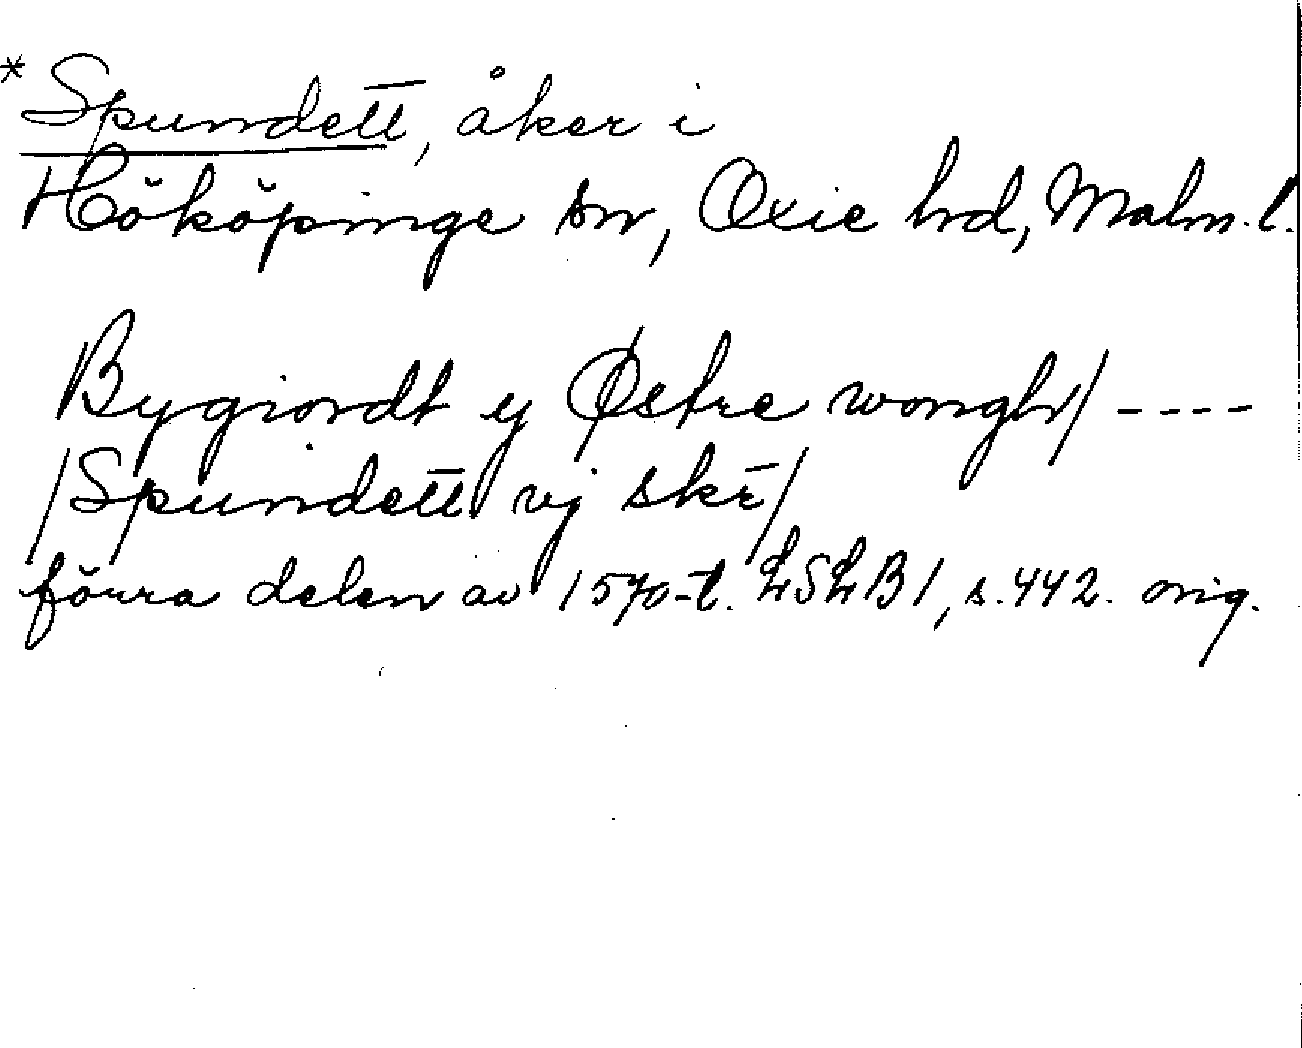 *Spundett, åker i
Hököpinge sn, Oxie hd, Malm. l.
Bygiordt y Østre wongh/ ----
/Spundett vj skr/
förra delen av 1570-t. LSLB1, s. 442. orig.